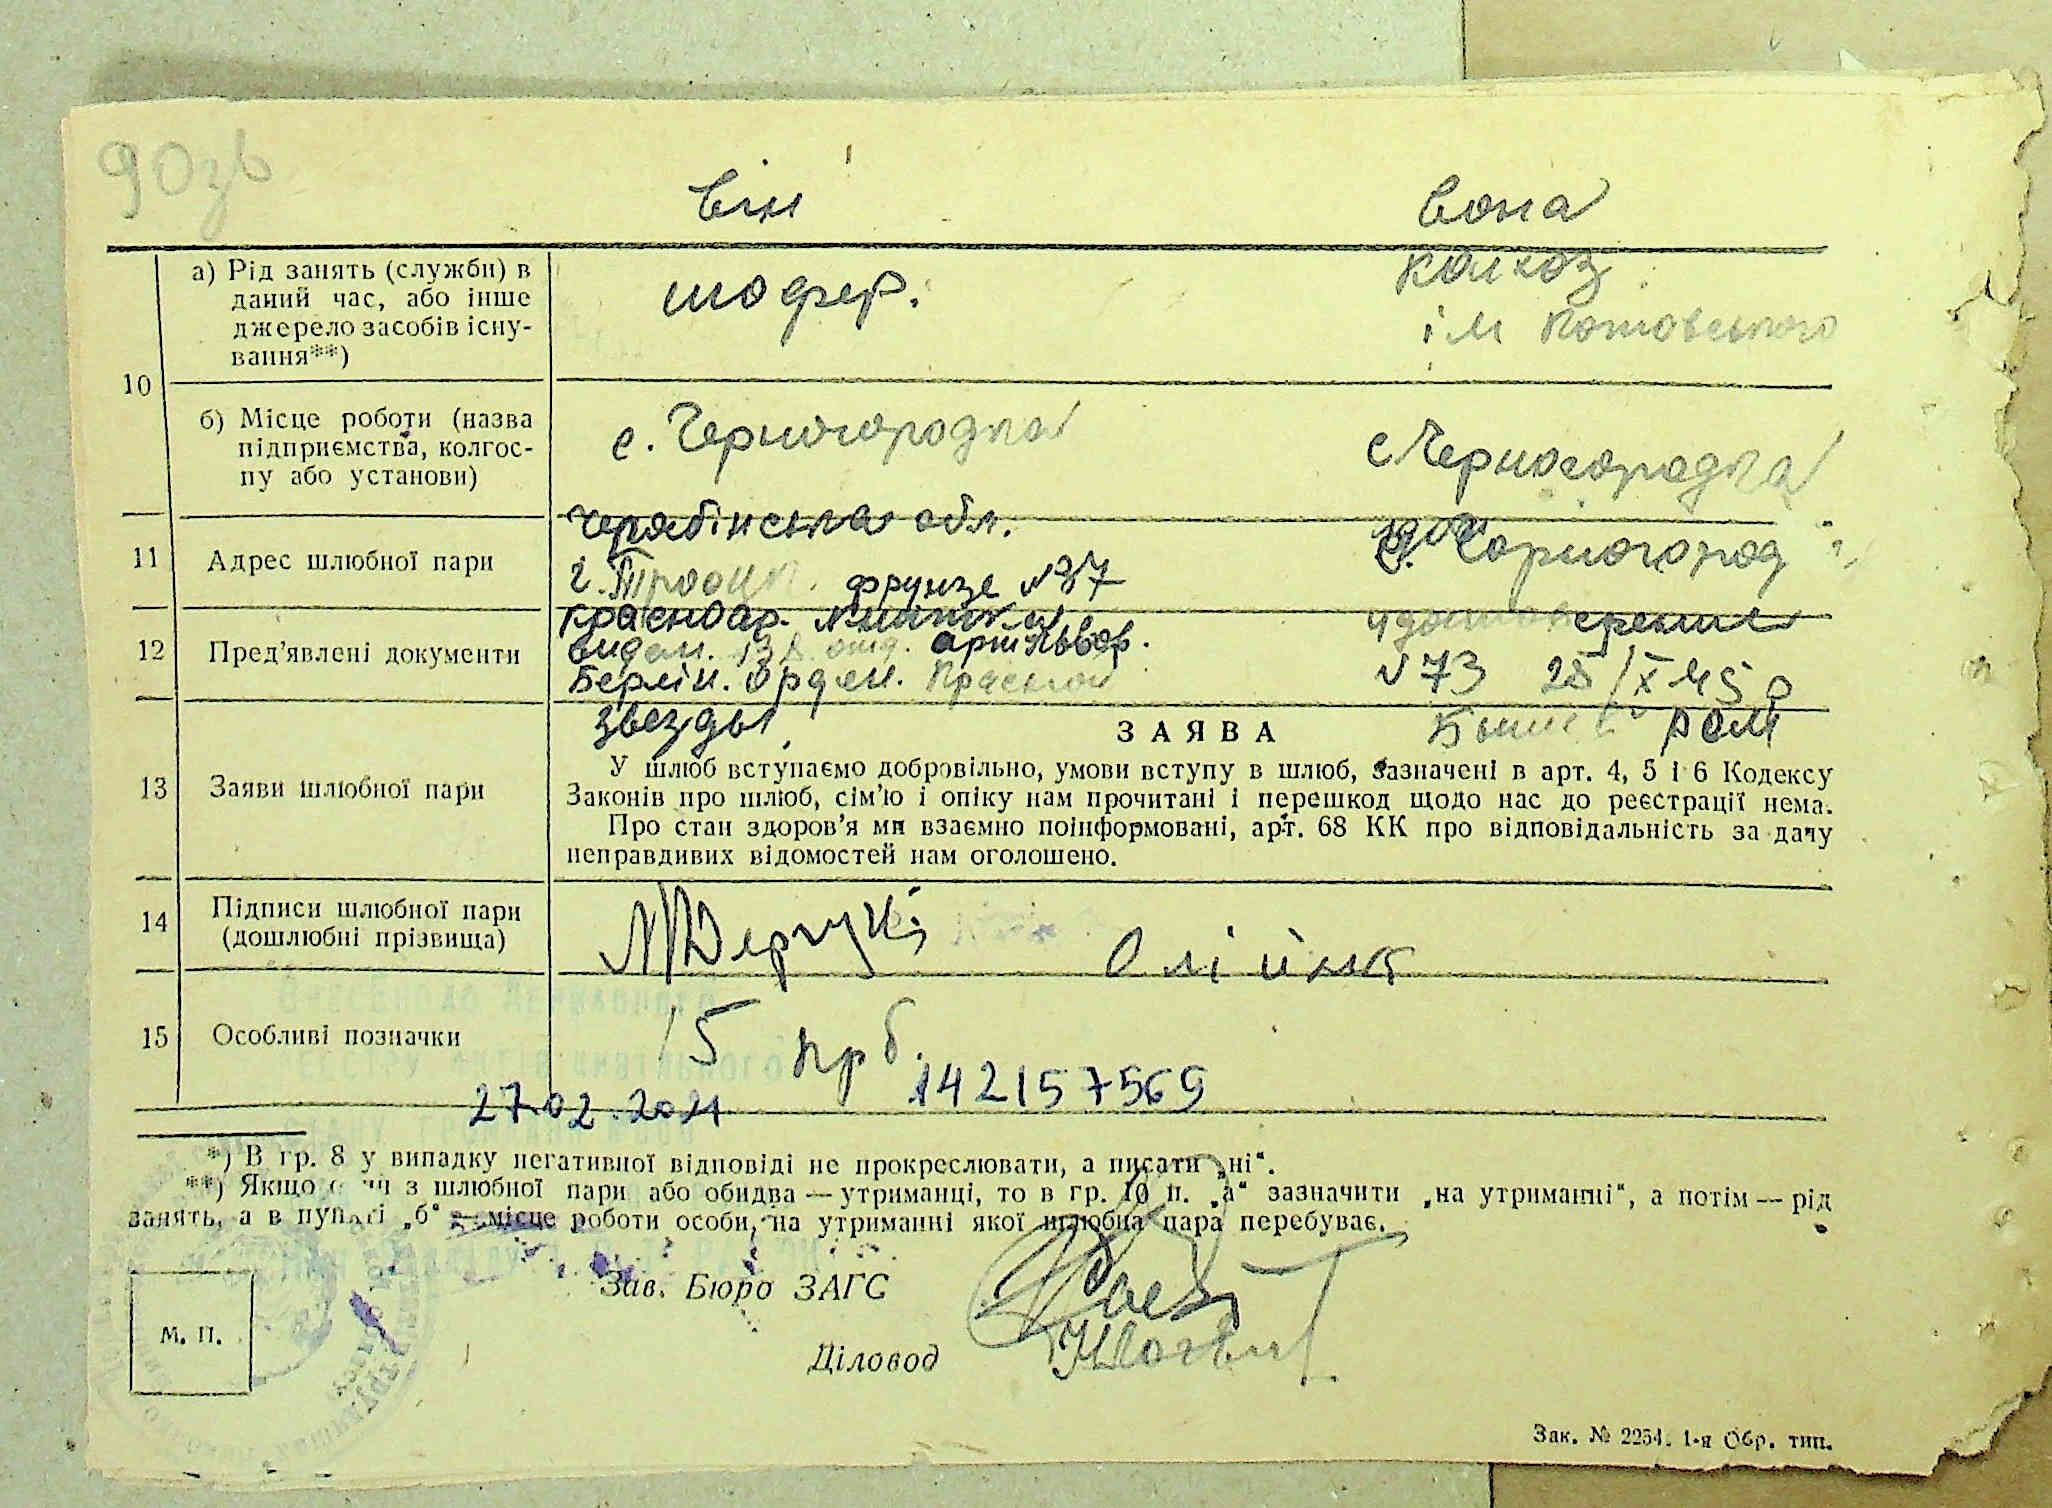 90зв
Він Вона
10
а) Рід занять (служби) в
даний час, або інше
джерело засобів існу-
вання**)
шофер.
колхоз
ім Котовського
б) Місце роботи (назва
підприємства, колгос-
пу або установи)
с. Черногородка
с Черногородка
11 Адрес шлюбної пари
Черябінська обл.
г. Троицк. Фрунзе №37
с. Чорногород
12 Пред'явлені документи
Красноар. книжка
видан. отд. арт
Берлін. Орден. Красной
звезды
удостоверение
№ 73 25/X 45 р
рсм
13 Заяви шлюбної пари
ЗАЯВА
У шлюб вступаємо добровільно, умови вступу в шлюб, зазначені в арт. 4, 5 і 6 Кодексу
Законів про шлюб, сім'ю і опіку нам прочитані і перешкод щодо нас до реєстрації нема.
Про стан здоров'я ми взаємно поінформовані, арт. 68 КК про відповідальність за дачу
неправдивих відомостей нам оголошено.
14 Підписи шлюбної пари
(дошлюбні прізвища)
Олійник
15 Особливі позначки
15 крб.
142157569
27.02.2021
*) В гр. 8 у випадку негативної відповіді не прокреслювати, а писати „ні“.
**) Якщо з шлюбної пари або обидва — утриманці, то в гр. 10 п. „а“ зазначити „на утриманні“, а потім — рід
занять, а в пункті „б“ — місце роботи особи, на утриманні якої шлюбна пара перебуває.
Зав. Бюро ЗАГС
Діловод
М. П.
Зак. № 2254. 1-я Обр. тип.